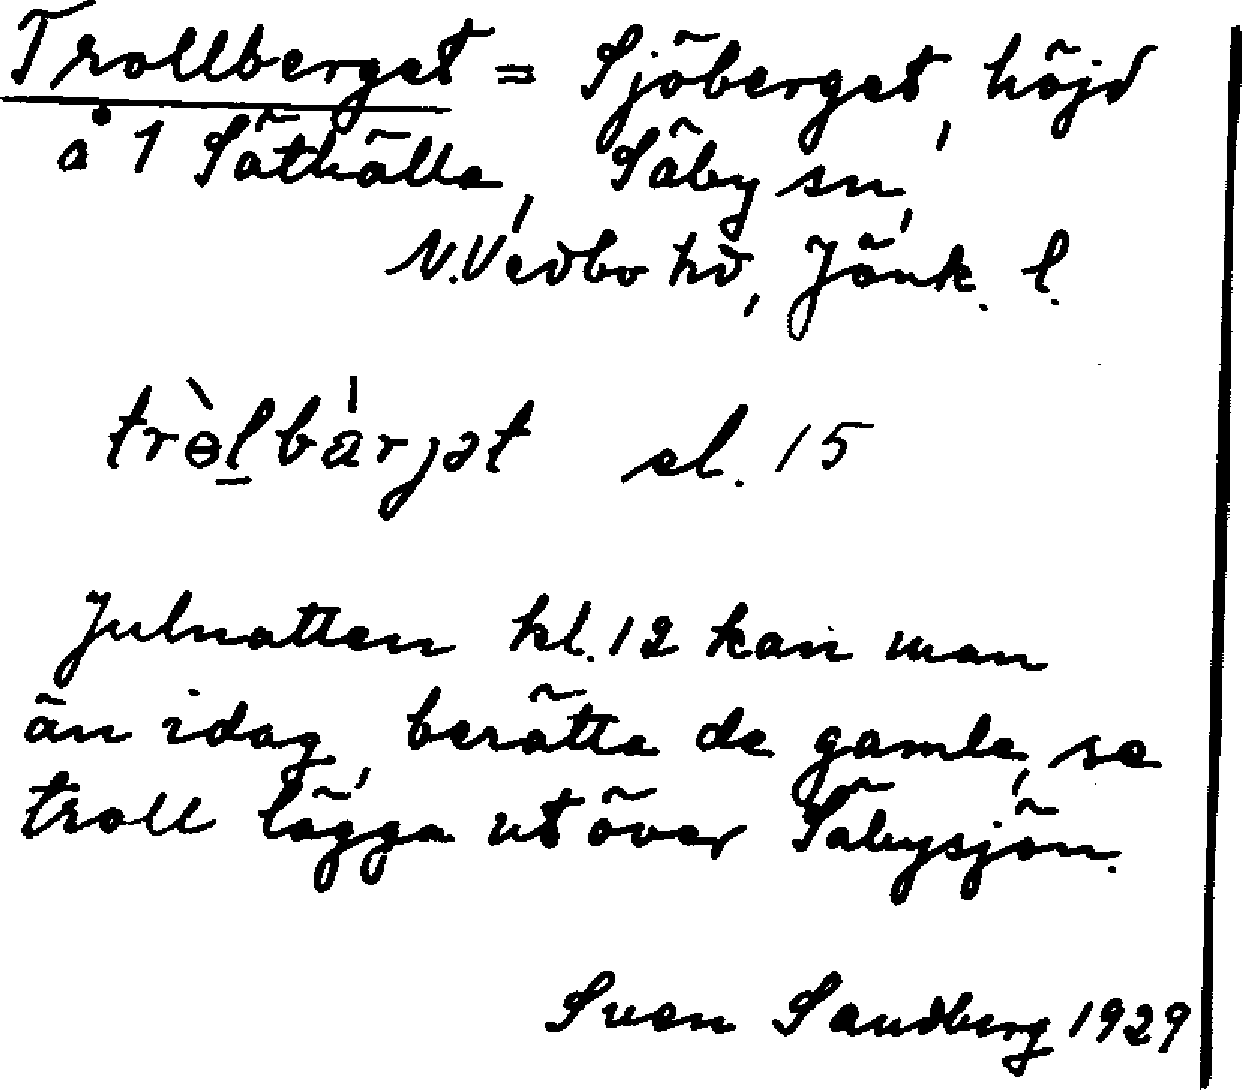 Trollberget = Sjöberget, höjd
å 1 Säthälla, Säby sn,
N. Vedbo hd, Jönk. l.
trɵ̀lbárjət el. 15
Julnatten kl. 12 kan man
än idag, berätta de gamle, se
troll tågga ut över Säbysjön.
Sven Sandberg 1929